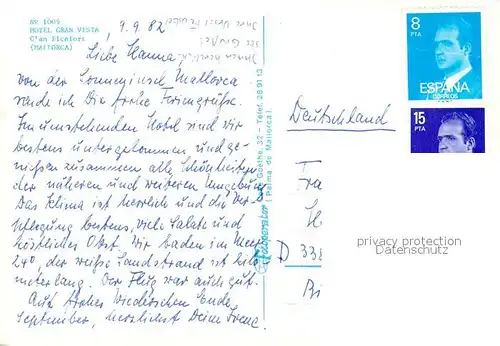 Nº 1009
HOTEL GRAN VISTA
C'an Picafort
(MALLORCA)
9.9.82
Liebe Hanna!
von der Sonneninsel Mallorca
sende ich Dir frohe Feriengrüße.
Im umstehenden Hotel sind wir
bestens untergekommen und ge-
nießen zusammen alle Schönheiten
der näheren und weiteren Umgebung
Das Klima ist herrlich und die Ver-
pflegung bestens, viele Salate und
köstliches Obst. Wir baden im Meer
24°, der weiße Sandstrand ist kilo-
meterlang. Der Flug war auch gut.
Auf frohes Wiedersehen Ende
September, herzlichst Deine Irene
Goethe, 32 - Telef. 28 91 13
(Palma de Mallorca)
8
PTA
ESPAÑA
CORREOS
15
PTA
Deutschland
Fra
H
D 338
privacy protection
Datenschutz